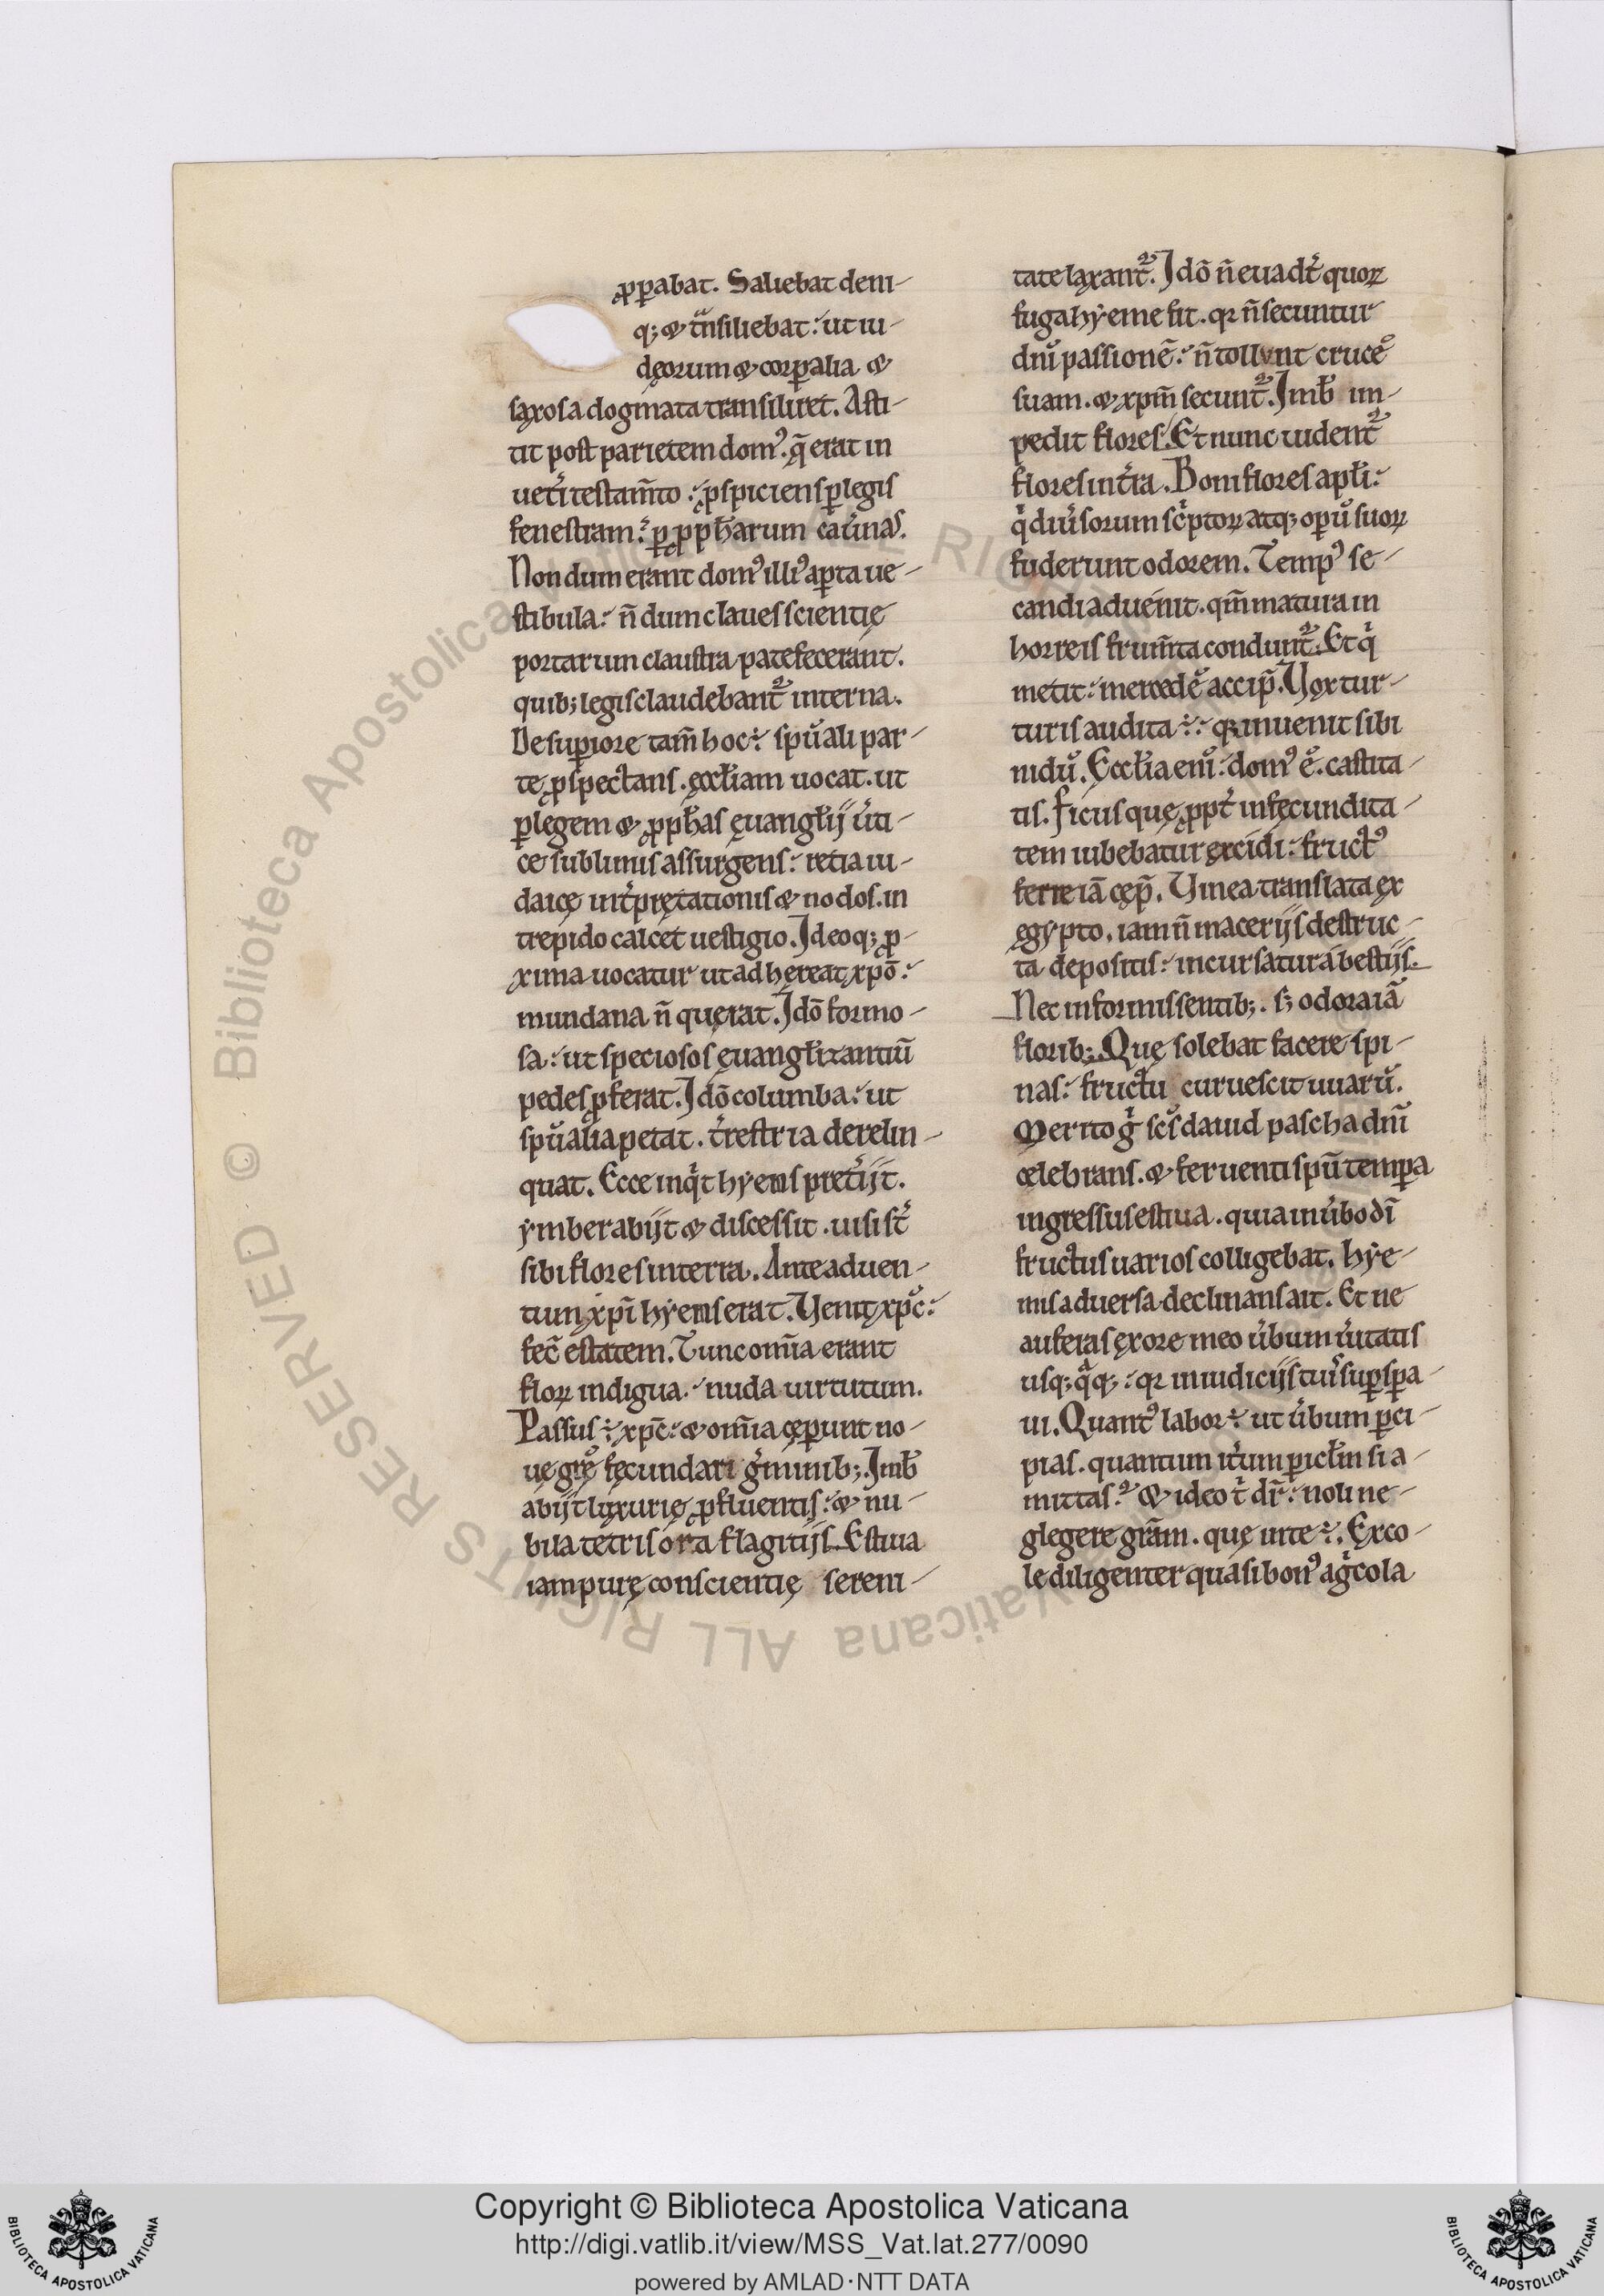 ꝓꝑabat. Saliebat deni-
q; & tͣnsiliebat: ut iu-
dęorum & corꝑalia &
saxosa dogmata transiliret. Asti-
tit post parietem domꝰ. q̄ erat in
uetͥi testam̄to: ꝓspiciens ꝑ legis
fenestram: ꝑ ꝓph̄arum cauͥnas.
Nondum erant domꝰ illiꝰ aꝑta ue-
stibula: n̄ dum claues scientię
portarum claustra patefecerant.
quib; legis claudebant᷑ interna.
De suꝑiore tam̄ hoc ÷ spū́ali par-
te ꝓspectans. ęccl̄iam uocat. ut
ꝑ legem & ꝓph̄as ęuangl̄ij uͥti-
ce sublimis assurgens: retia iu-
daicę int̾prętationis & nodos. in
trepido calcet uestigio. Ideoq; ꝓ-
xima uocatur ut adhęreat xp̄o:
mundana n̄ quęrat. Idō formo-
sa: ut speciosos ęuangl̄izantiū
pedes p̄ferat. Idō columba: ut
spū́alia petat. t̾restria derelin-
quat. Ecce inqͥt hyems pret̾ijt.
ymber abijt & discessit. uisi st̾
sibi flores in terra. Ante aduen-
tum xp̄i hyems erat. Venit xp̄c:
fec̄ estatem. Tunc om̄ia erant
floꝝ indigua: nuda uirtutum.
Passus ÷ xp̄c: & om̄ia cęꝑunt no-
uę gr̄ę fęcundari g̾minib;. Imb̾
abijt luxurię ꝓfluentis: & nu-
bila tetris orta flagitijs. Estiua
iam purę conscientię sereni-
tate laxant᷑. Idō n̄ euadt̾ quoꝝ
fuga hyeme fit. qꝛ n̄ secuntur
dn̄i passionē: n̄ tollunt crucē
suam. & xp̄m secunt᷑. Imb̾ im-
pedit flores. Et nunc uident᷑
flores in t̾ra. Boni flores apl̄i:
qͥ diu̾sorum scͥptoꝝ atq; oꝑū suoꝝ
fuderunt odorem. Tempꝰ se-
candi aduenit. qm̄ matura in
horreis frum̄ta condunt᷑. Et qͥ
metit: mercedē accip̄. Vox tur-
turis audita ÷: qꝛ inuenit sibi
nidū. Eccl̄ia enī: domꝰ ē. castita-
tis. Ficus quę ꝓpt̾ infęcundita-
tem iubebatur excidi: fructꝰ
ferre iā cęp̄. Vinea translata ex
ęgypto. iam n̄ macerijs destruc-
ta depositis: incursatur a bestijs.
Nec informis sentib;. s; odora iā
florib;. Quę solebat facere spi-
nas: fructu curuescit uuarū.
Merito gͥ scs̄ dauid pascha dn̄i
celebrans. & feruenti spū tempa
ingressus estiua. quia in u̾bo dī
fructus uarios colligebat. hye-
mis aduersa declinans ait. Et ne
auferas ex ore meo u̾bum u̾itatis
usq;qͣq;: qꝛ in iudicijs tuis suꝑspa-
ui. Quantꝰ labor ÷ ut u̾bum ꝑci-
pias. quantum it̾um ꝑicl̄m si a-
mittas. & ideo t̾ dr̄: noli ne-
glegere gr̄am. que in te ÷. Exco-
le diligenter quasi bonꝰ agͥcola
Copyright © Biblioteca Apostolica Vaticana
http://digi.vatlib.it/view/MSS_Vat.lat.277/0090
powered by AMLAD·NTT DATA
BIBLIOTECA APOSTOLICA VATICANA
BIBLIOTECA APOSTOLICA VATICANA